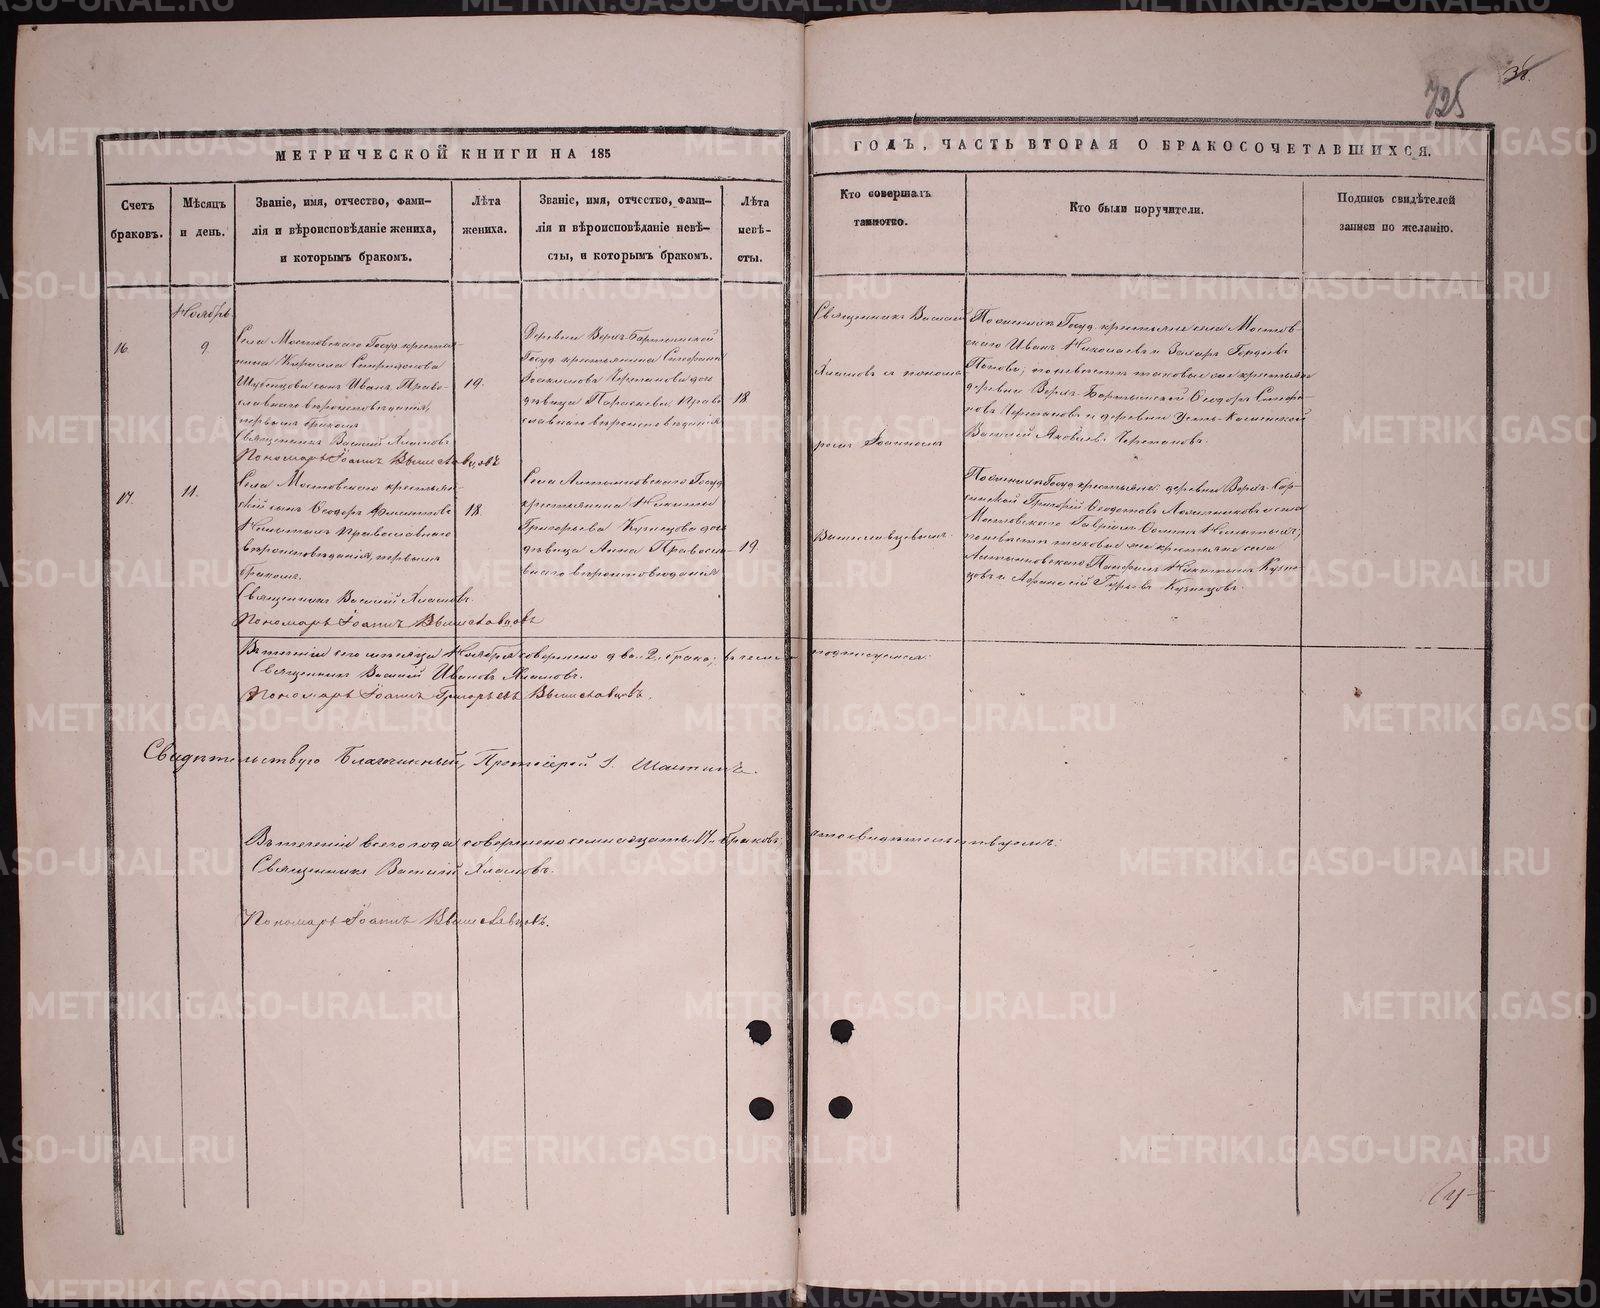 725
МЕТРИЧЕСКОЙ КНИГИ НА 185
ГОДЪ, ЧАСТЬ ВТОРАЯ О БРАКОСОЧЕТАВШИХСЯ.
Счетъ браковъ.
Мѣсяцъ и день.
Званіе, имя, отчество, фами-
лія и вѣроисповѣданіе жениха,
и которымъ бракомъ.
Лѣта жениха.
Званіе, имя, отчество, фами-
лія и вѣроисповѣданіе невѣ-
сты, и которымъ бракомъ.
Лѣта невѣ-
сты.
Кто совершалъ
таинство.
Кто были поручители.
Подпись свидѣтелей
записи по желанію.
Ноябрь
16.
9.
Села Мостовскаго Госуд. крестья-
нина Кирилла Спиридонова
сынъ Иванъ Право-
славнаго вѣроисповѣданія,
первымъ бракомъ
Священникъ Василій Хламовъ
Пономарь Іоаннъ Вышеславцовъ
19.
Деревни Верхъ
Госуд. крестьянина Стефана
Черепанова доч
дѣвица Параскева, Право
славнаго вѣроисповѣданія
18.
Священникъ Василій
Хламовъ съ понома
ремъ Іоанномъ
Вышеславцевымъ.
По женихѣ Госуд. крестьяне села Мостов-
скаго Иванъ Николаевъ и Захаръ Гордѣевъ
Поповы; по невѣстѣ таковые же крестьяне
деревни Верхъ Ѳеодоръ Стефа-
новъ Черепановъ и деревни Усть
Василій Яковлевъ Черепановъ.
17.
11.
Села Мостовскаго крестьян-
скій сынъ Ѳеодоръ
Православнаго
вѣроисповѣданія, первымъ
бракомъ.
Священникъ Василій Хламовъ.
Пономарь Іоаннъ Вышеславцовъ
18.
Села Госуд
крестьянина Никиты
Григорьева Кузнецова доч
дѣвица Анна Правосла-
внаго вѣроисповѣданія
19.
По женихѣ Госуд. крестьяне: деревни Верхъ
Григорій Ѳеодотовъ и села
Мостовскаго Гавріилъ
по невѣстѣ таковые же крестьяне села
Памфилъ Никитинъ Кузне
цовъ и Аѳанасій Кузнецовъ.
Въ теченіи сего мѣсяца Ноября совершено два 2. брака; въ чемъ и подписуемся:
Священникъ Василій Ивановъ Хламовъ.
Пономарь Іоаннъ Григорьевъ Вышеславцовъ.
Свидѣтельствую Благочинный, Протоіерей І.
Въ теченіи всего года совершено семнадцать 17. браковъ; что свидѣтельствуемъ:
Священникъ Василій Хламовъ.
Пономарь Іоаннъ Вышеславцовъ.
METRIKI.GASO-URAL.RU